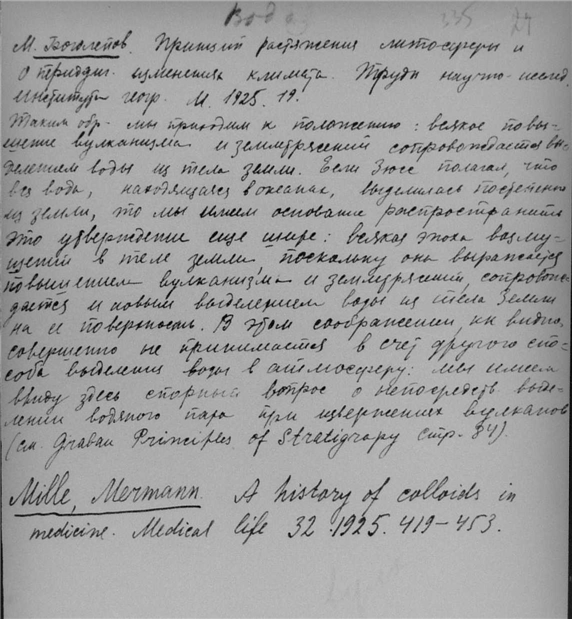 Вода
335 24
М. Боголепов. Принцип растяжения литосферы и
о периодич. изменениях климата. Труды научно-исслед.
Института геогр. М. 1925. 19.
Таким обр. мы приходим к положению: всякое повы-
шение вулканизма и землетрясений сопровождается вы-
делением воды из тела земли. Если Зюсс полагал, что
вся вода, находящаяся в океанах, выделилась постепенно
из земли, то мы имеем основание распространить
это утверждение еще шире: всякая эпоха возму-
щений в теле земли, поскольку она выражается
повышением вулканизма и землетрясений, сопровож-
дается и новым выделением воды из тела Земли
на ее поверхность. В этом соображении, как видно,
совершенно не принимается в счет другого спо-
соба выделения воды в атмосферу: мы имеем
ввиду здесь спорный вопрос о непосредств. выде-
лении водяного пара при извержениях вулканов
(см. Grabau Principles of Stratigrapy стр. 84).
Mille, Mermann. A history of colloids in
medicine. Medical life 32. 1925. 419–453.